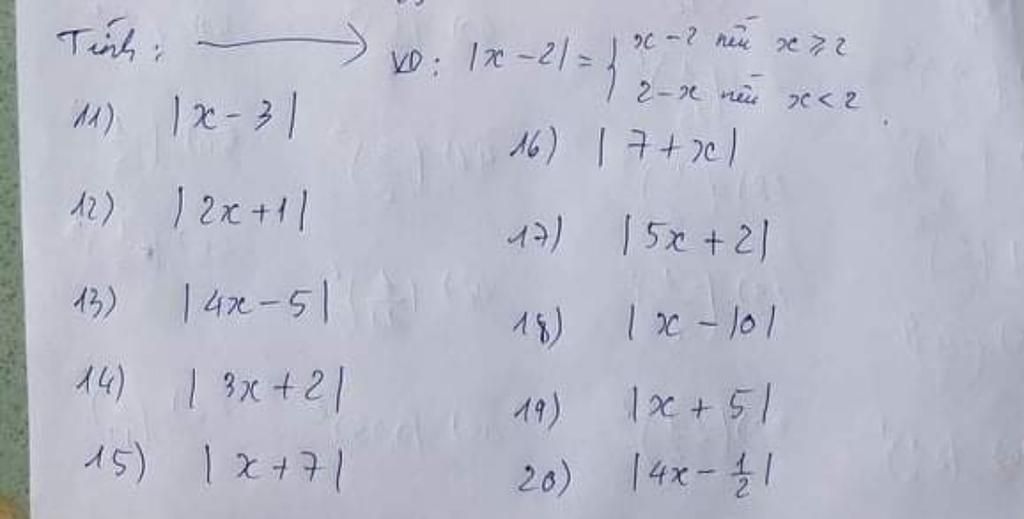 Tính: ⟶ VD: |x - 2| = { x - 2 nếu x ≥ 2
2 - x nếu x < 2
11) |x - 3|
12) |2x + 1|
13) |4x - 5|
14) |3x + 2|
15) |x + 7|
16) |7 + x|
17) |5x + 2|
18) |x - 10|
19) |x + 5|
20) |4x - 1/2|